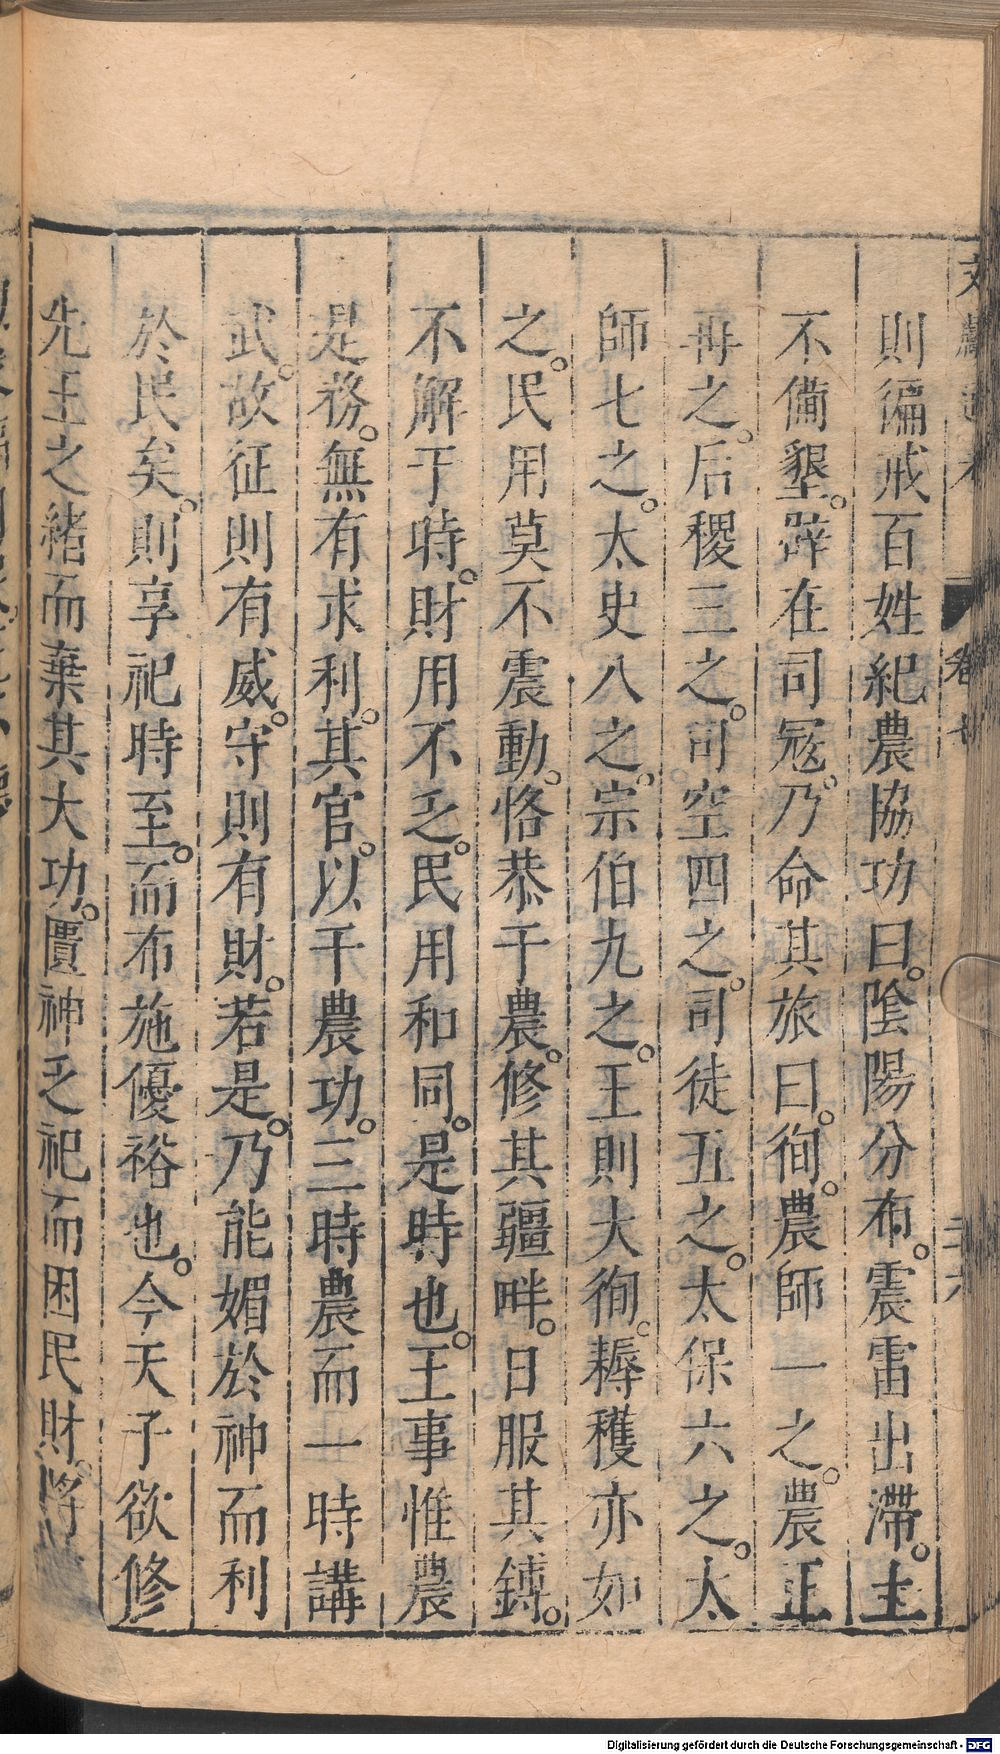 則徧戒百姓紀農協功曰。陰陽分布。震雷出滯。土
不備墾。辟在司寇。乃命其旅曰。徇。農師一之。農正
再之。后稷三之。司空四之。司徒五之。太保六之。太
師七之。太史八之。宗伯九之。王則大徇。耨穫亦如
之。民用莫不震動。恪恭于農。修其疆畔。日服其鎛。
不解于時。財用不乏。民用和同。是時也。王事惟農
是務。無有求利。其官。以干農功。三時農而一時講
武。故征則有威。守則有財。若是。乃能媚於神而利
於民矣。則享祀時至。而布施優裕也。今天子欲修
先王之緒而棄其大功。匱神乏祀而困民財。將
卷
Digitalisierung gefördert durch die Deutsche Forschungsgemeinschaft - DFG